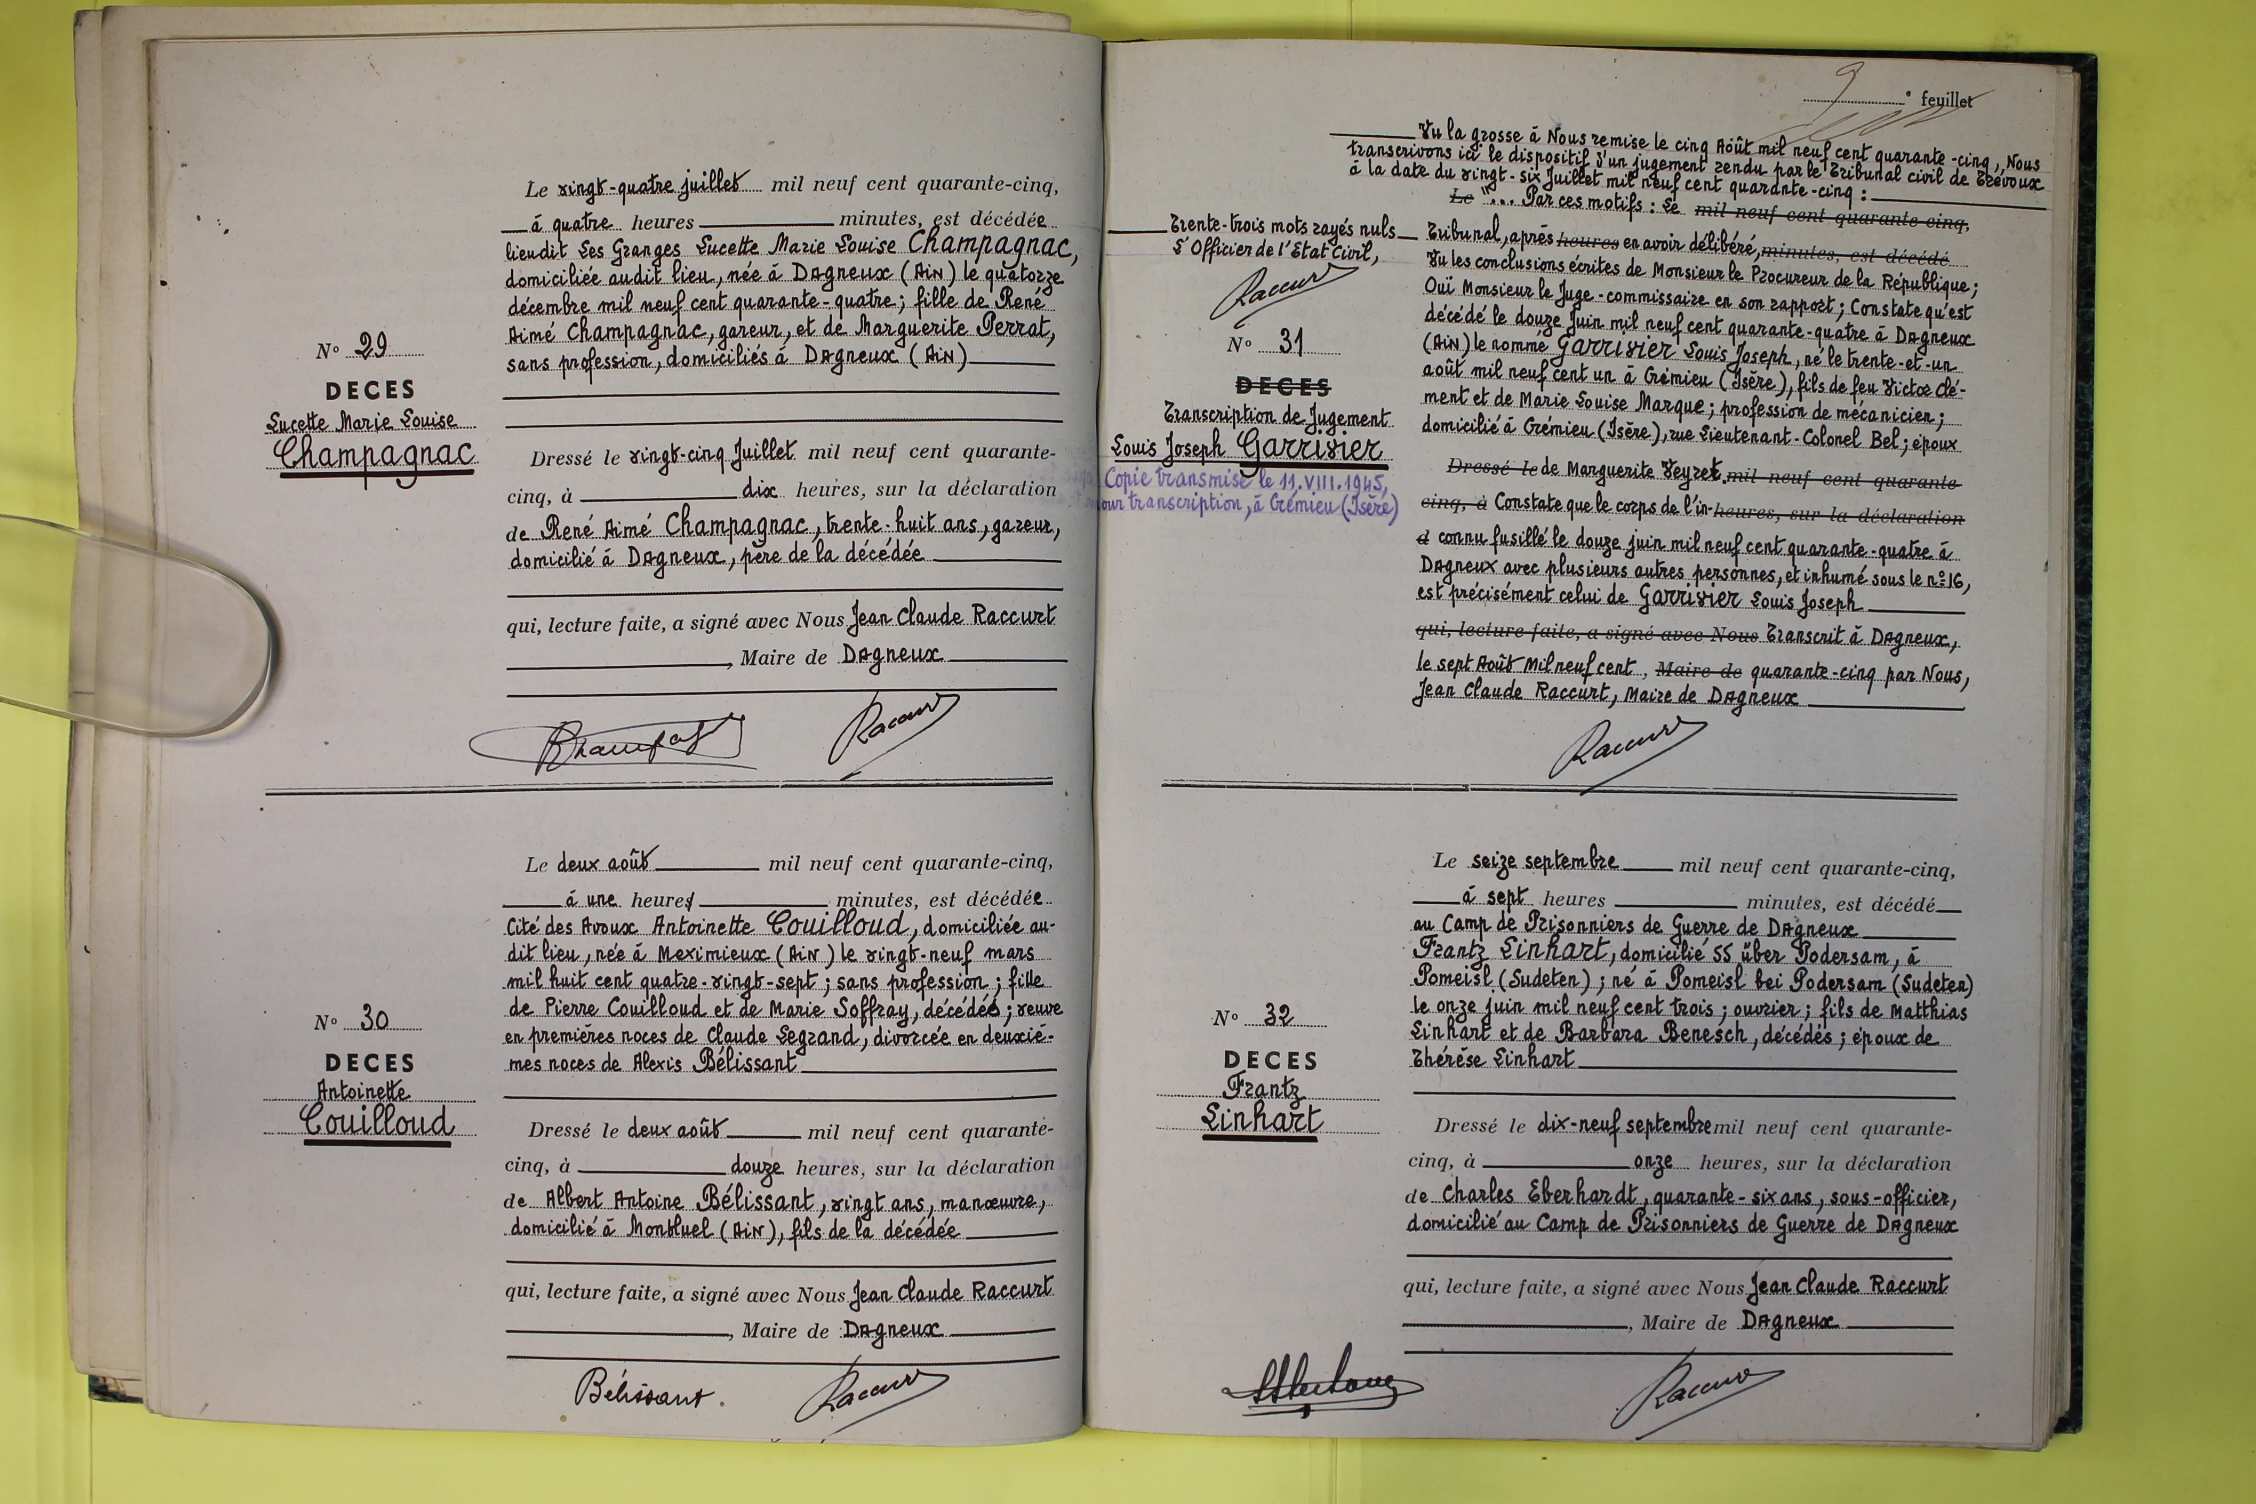 Le vingt-quatre juillet mil neuf cent quarante-cinq,
à quatre heures minutes, est décédée
lieudit Les Granges Lucette Marie Louise Champagnac,
domiciliée audit lieu, née à Dagneux (Ain) le quatorze
décembre mil neuf cent quarante-quatre ; fille de René
Aimé Champagnac, gareur, et de Marguerite Perrat,
sans profession, domiciliés à Dagneux (Ain)
N° 29
DECES
Lucette Marie Louise
Champagnac
Dressé le vingt-cinq Juillet mil neuf cent quarante-
cinq, à dix heures, sur la déclaration
de René Aimé Champagnac, trente-huit ans, gareur,
domicilié à Dagneux, père de la décédée
qui, lecture faite, a signé avec Nous Jean Claude Raccurt
, Maire de Dagneux
Raccurt
Le deux août mil neuf cent quarante-cinq,
à une heures minutes, est décédée
Cité des Avoux Antoinette Couilloud, domiciliée au-
dit lieu, née à Meximieux (Ain) le vingt-neuf mars
mil huit cent quatre-vingt-sept ; sans profession ; fille
de Pierre Couilloud et de Marie Soffray, décédés ; veuve
en premières noces de Claude Legrand, divorcée en deuxiè-
mes noces de Alexis Bélissant
N° 30
DECES
Antoinette
Couilloud
Dressé le deux août mil neuf cent quarante-
cinq, à douze heures, sur la déclaration
de Albert Antoine Bélissant, vingt ans, manœuvre,
domicilié à Montluel (Ain), fils de la décédée
qui, lecture faite, a signé avec Nous Jean Claude Raccurt
, Maire de Dagneux
Bélissant. Raccurt
9 e feuillet
Vu la grosse à Nous remise le cinq Août mil neuf cent quarante-cinq, Nous
transcrivons ici le dispositif d'un jugement rendu par le Tribunal civil de Trévoux
à la date du vingt-six Juillet mil neuf cent quarante-cinq :
Le "... Par ces motifs : Le mil neuf cent quarante-cinq,
Tribunal, après heures en avoir délibéré, minutes, est décédé
Vu les conclusions écrites de Monsieur le Procureur de la République ;
Ouï Monsieur le Juge-commissaire en son rapport ; Constate qu'est
décédé le douze Juin mil neuf cent quarante-quatre à Dagneux
(Ain) le nommé Garrivier Louis Joseph, né le trente-et-un
août mil neuf cent un à Crémieu (Isère), fils de feu Victor Clé-
ment et de Marie Louise Marque ; profession de mécanicien ;
domicilié à Crémieu (Isère), rue Lieutenant-Colonel Bel ; époux
Trente-trois mots rayés nuls
L'Officier de l'Etat Civil,
Raccurt
N° 31
DECES
Transcription de Jugement
Louis Joseph Garrivier
Copie transmise le 11.VIII.1945,
pour transcription, à Crémieu (Isère)
Dressé le de Marguerite Veyret. mil neuf cent quarante
cinq, à Constate que le corps de l'in- heures, sur la déclaration
d connu fusillé le douze juin mil neuf cent quarante-quatre à
Dagneux avec plusieurs autres personnes, et inhumé sous le n° 16,
est précisément celui de Garrivier Louis Joseph
qui, lecture faite, a signé avec Nous Transcrit à Dagneux,
le sept Août Mil neuf cent, Maire de quarante-cinq par Nous,
Jean Claude Raccurt, Maire de Dagneux
Raccurt
Le seize septembre mil neuf cent quarante-cinq,
à sept heures minutes, est décédé
au Camp de Prisonniers de Guerre de Dagneux
Frantz Linhart, domicilié 55 über Podersam, à
Pomeisl (Sudeten) ; né à Pomeisl bei Podersam (Sudeten)
le onze juin mil neuf cent trois ; ouvrier ; fils de Matthias
Linhart et de Barbara Benesch, décédés ; époux de
Thérèse Linhart
N° 32
DECES
Frantz
Linhart
Dressé le dix-neuf septembre mil neuf cent quarante-
cinq, à onze heures, sur la déclaration
de Charles Eberhardt, quarante-six ans, sous-officier,
domicilié au Camp de Prisonniers de Guerre de Dagneux
qui, lecture faite, a signé avec Nous Jean Claude Raccurt
, Maire de Dagneux
Raccurt